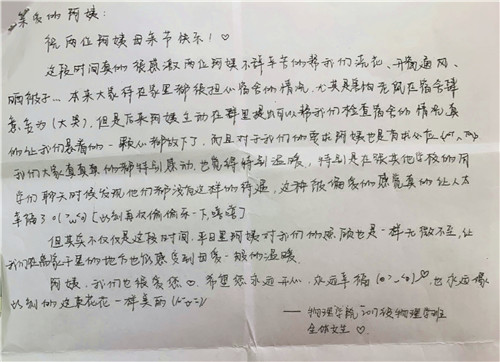 亲爱的阿姨：
祝两位阿姨母亲节快乐！♡
这段时间真的很感激两位阿姨不辞辛苦的帮我们浇花、开窗通风、
晒被子… 本来大家待在家里都很担心宿舍的情况，尤其是害怕老鼠在宿舍肆
意妄为(大哭)，但是后来阿姨主动在群里提出可以帮我们检查宿舍的情况真
的让我们悬着的一颗心都放下了，而且对于我们的要求阿姨也是有求必应
我们大家是真真的都特别感动，也觉得特别温暖，特别是在跟其他学校的同
学们聊天时候发现他们都没有这样的待遇，这种被偏爱的感觉真的让人太
幸福了
但其实不仅仅是这段时间，平日里阿姨对我们的照顾也是一样无微不至，让
我们在离家千里的地方也仍感受到母爱一般的温暖。
阿姨，我们也很爱您♡，希望您永远开心，永远幸福♡，也永远像
收到的这束花花一样美丽
—— 物理学院 物理学班
全体女生 ♡